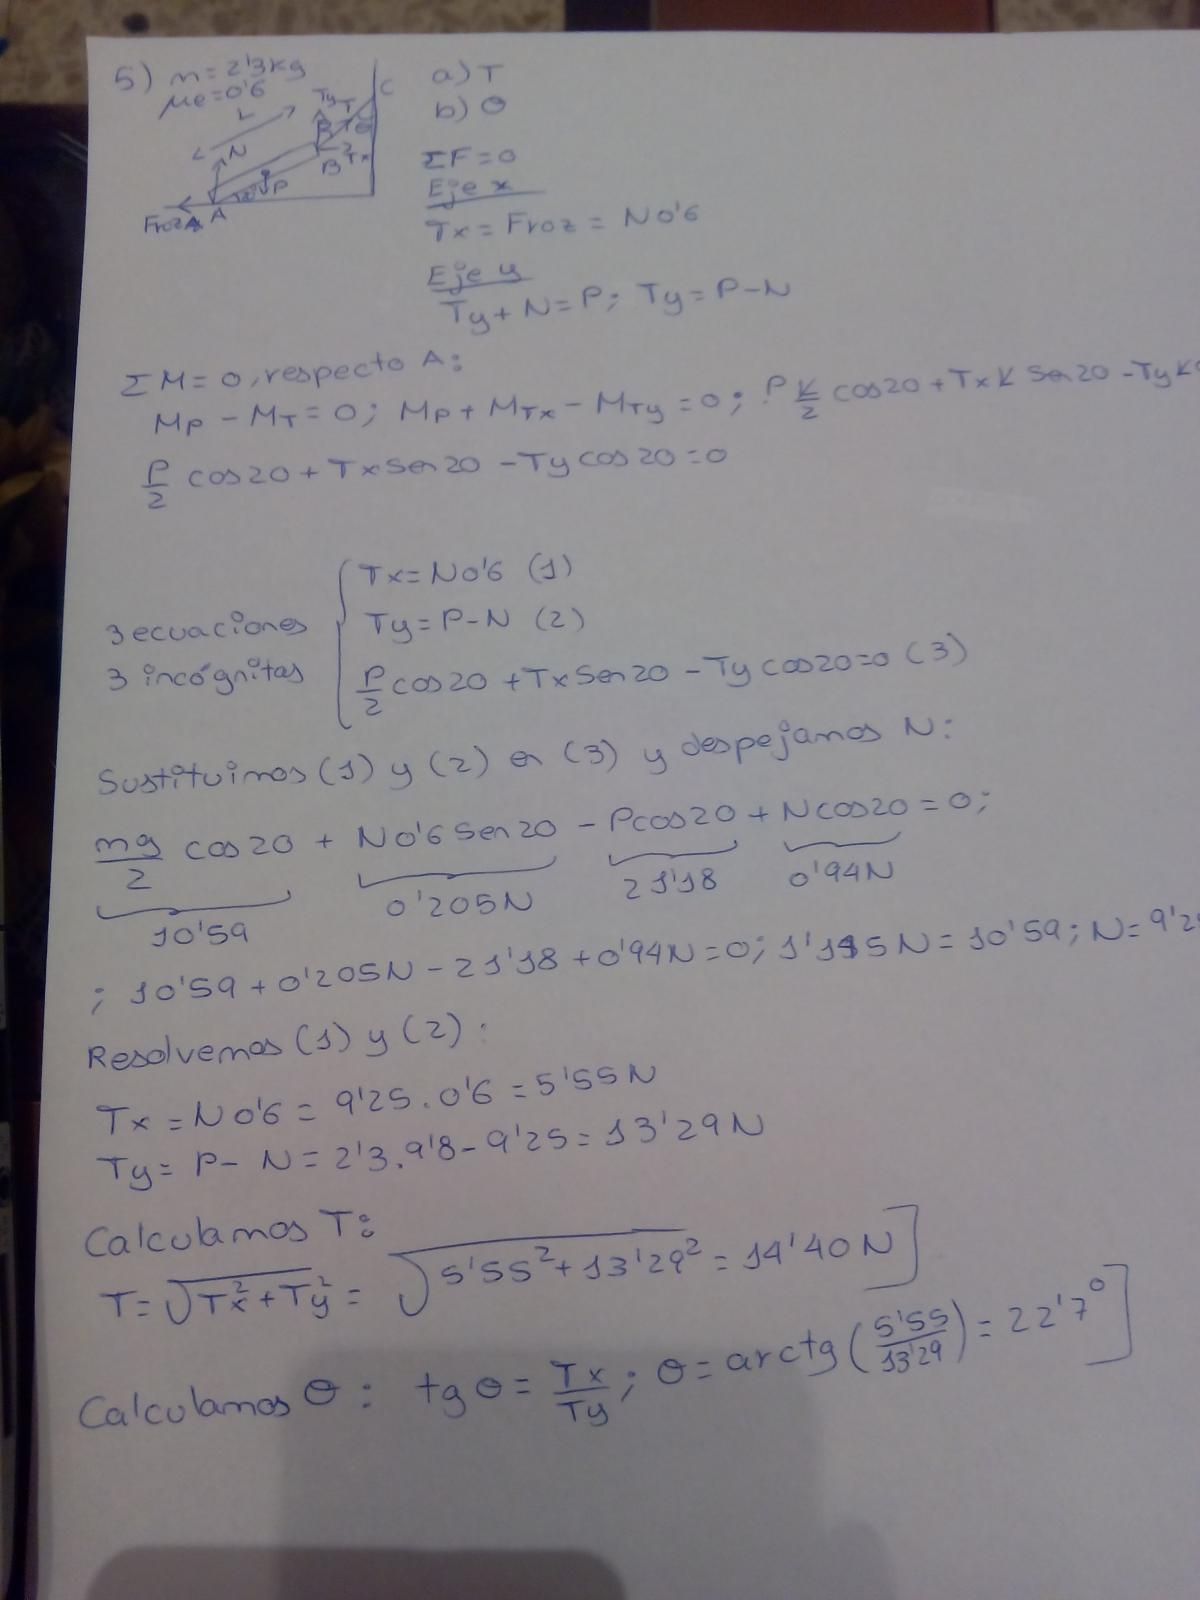 5) m=2'3kg
μe=0'6
a) T
b) θ
L
Ty T C
N
B Tx
P
20º
Froz A
ΣF=0
Eje x
Tx = Froz = N0'6
Eje y
Ty + N = P; Ty = P-N
ΣM=0, respecto A:
Mp - MT = 0; Mp + MTx - MTy = 0; P K/2 cos20 + Tx K Sen20 - Ty K
P/2 cos20 + Tx Sen20 - Ty cos20 = 0
3 ecuaciones
3 incógnitas
Tx = N0'6 (1)
Ty = P-N (2)
P/2 cos20 + Tx Sen20 - Ty cos20 = 0 (3)
Sustituimos (1) y (2) en (3) y despejamos N:
mg/2 cos20 + N0'6 Sen20 - Pcos20 + Ncos20 = 0;
10'59 0'205N 21'18 0'94N
; 10'59 + 0'205N - 21'18 + 0'94N = 0; 1'145N = 10'59; N = 9'25
Resolvemos (1) y (2):
Tx = N0'6 = 9'25 . 0'6 = 5'55N
Ty = P - N = 2'3 . 9'8 - 9'25 = 13'29N
Calculamos T:
T = √Tx² + Ty² = √5'55² + 13'29² = 14'40 N]
Calculamos θ: tg θ = Tx/Ty; θ = arctg (5'55/13'29) = 22'7º]